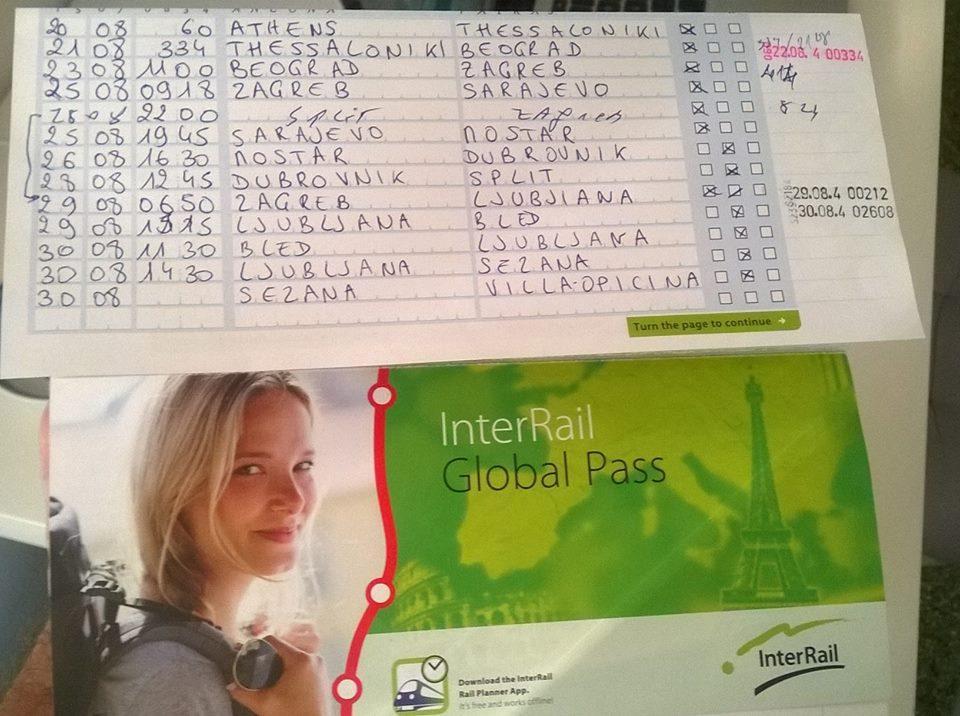 20 08 60 ATHENS THESSALONIKI
21 08 334 THESSALONIKI BEOGRAD
22.08. 4 00334
23 08 1100 BEOGRAD ZAGREB
25 08 0918 ZAGREB SARAJEVO
28 08 2200 Split Zagreb
25 08 1945 SARAJEVO MOSTAR
26 08 1630 MOSTAR DUBROVNIK
28 08 1245 DUBROVNIK SPLIT
29 08 0650 ZAGREB LJUBLJANA 29.08.4 00212
29 08 LJUBLJANA BLED 30.08.4 02608
30 08 1130 BLED LJUBLJANA
30 08 1430 LJUBLJANA SEZANA
30 08 SEZANA VILLA-OPICINA
Turn the page to continue →
InterRail
Global Pass
Download the InterRail
Rail Planner App.
It's free and works offline!
InterRail